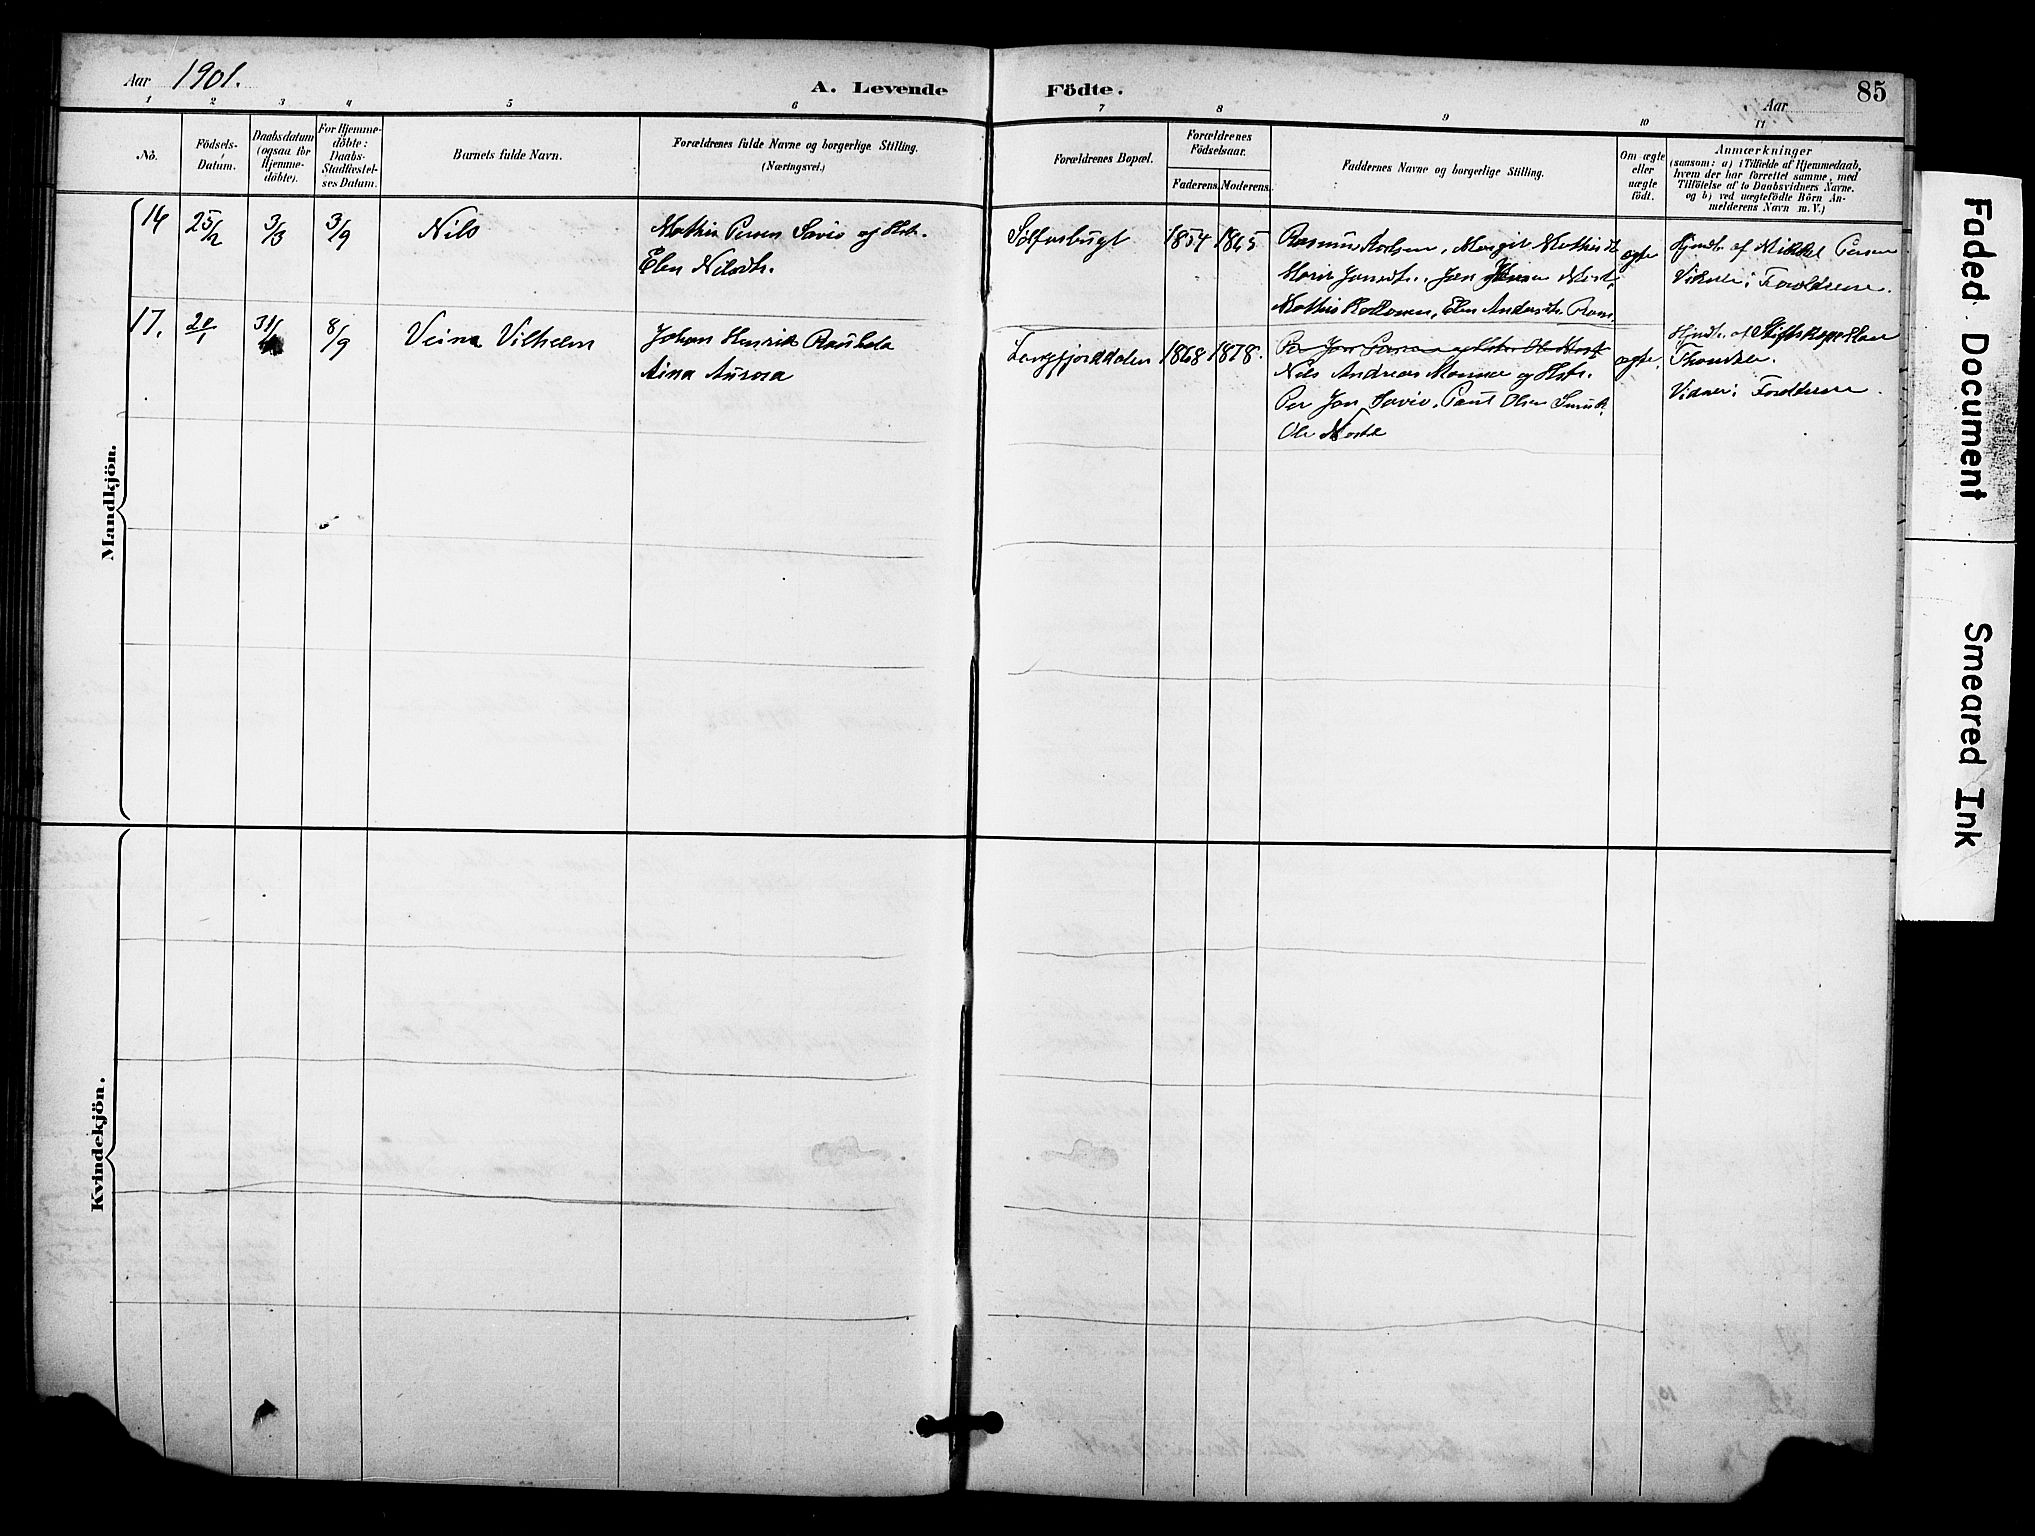 Aar 1901.
A. Levende Födte.
Aar
85
1 2 3 4 5 6 7 8 9 10 11
No.
Födsels-
Datum.
Daabsdatum
(ogsaa for
Hjemme-
döbte).
For Hjemme-
döbte:
Daabs-
Stadfæstel-
ses Datum.
Barnets fulde Navn.
Forældrenes fulde Navne og borgerlige Stilling.
(Næringsvei.)
Forældrenes Bopæl.
Forældrenes
Födselsaar.
Faderens. Moderens.
Faddernes Navne og borgerlige Stilling.
Om ægte
eller
uægte
födt.
Anmærkninger
(saasom: a) i Tilfælde af Hjemmedaab,
hvem der har forrettet samme, med
Tilföielse af to Daabsvidners Navne.
og b) ved uægtefödte Börn An-
melderens Navn m. V.)
Mandkjön.
16 25/2 3/3 3/9 Nils
Mathis Persen Savio og Hstr.
Elen Nilsdtr.
1854 1865
Rasmus
Marie Jonsdtr.
Mathis
ægte
Hjmdt. af Mikkel Persen
Vidner: Forældrene.
17. 20/1 8/9 Veina Vilhelm
Johan Henrik
Aina Aurora
Langfjorddalen 1868 1878.
Nils Andreas og Hstr.
Per Jon Savio. Paul Olsen
Ole
ægte.
Hjmdt. af
Vidner: Forældrene.
Kvindekjön.
Faded Document
Smeared Ink